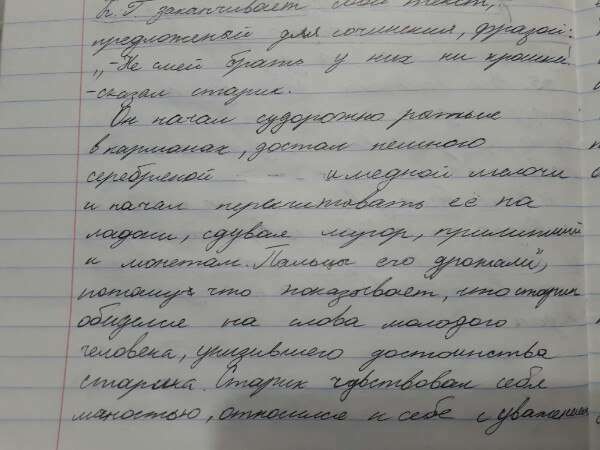 К. Г. заканчивает свой текст,
предложеный для сочинения, фразой:
„-Не смей брать у них ни крошки!
-сказал старик.
Он начал судорожно рытые
в карманах, достал немного
серебряной и медной мелочи
и начал пересчитовать её на
ладони, сдувая мусор, прилипший
к монетам. Пальцы его дрожали",
потому что показывает, что старик
обиделся на слова молодого
человека, унизившего достоинства
старика. Старик чувствовал себя
личностью, относился к себе с уважением